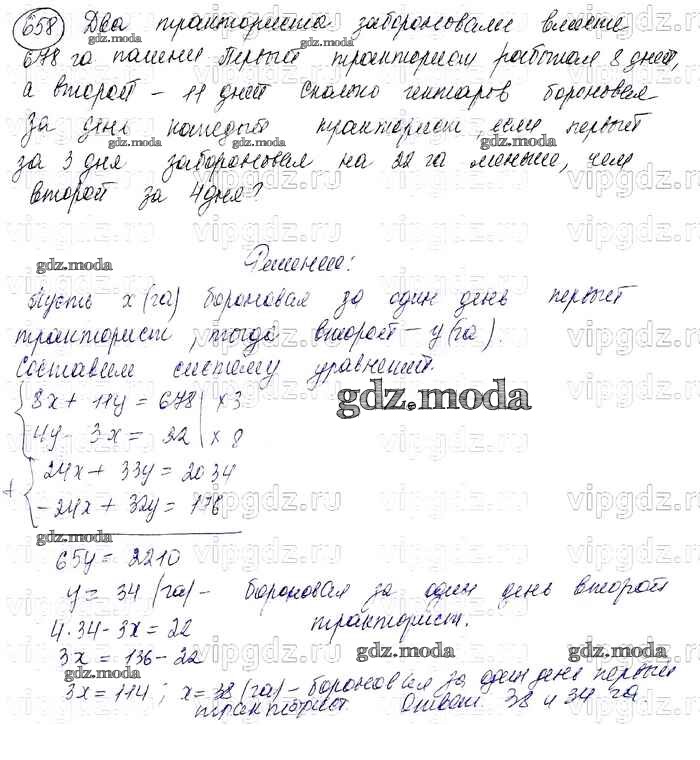 658) Два тракториста забороновали вместе
678 га пашни Первый тракторист работал 8 дней,
а второй – 11 дней Сколько гектаров бороновал
за день каждый тракторист, если первый
за 3 дня забороновал на 22 га меньше, чем
второй за 4дня?
gdz.moda
Решение:
Пусть x (га) бороновал за один день первый
тракторист, тогда второй – y (га).
Составим систему уравнений.
8x + 11y = 678 | × 3
4y - 3x = 22 | × 8
gdz.moda
+ 24x + 33y = 2034
-24x + 32y = 176
65y = 2210
y = 34 (га) – бороновал за один день второй
тракторист.
4·34 - 3x = 22
3x = 136 - 22
3x = 114 ; x = 38 (га) – бороновал за один день первый
тракторист. Ответ: 38 и 34 га.